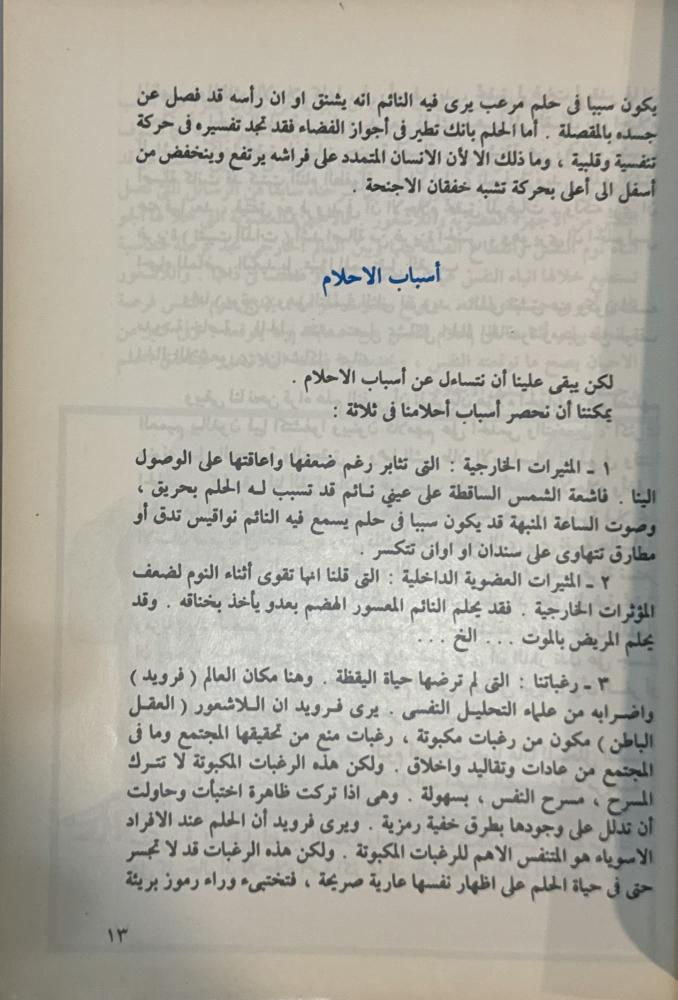 يكون سببا فى حلم مرعب يرى فيه النائم انه يشنق او ان رأسه قد فصل عن
جسده بالمقصلة . أما الحلم بانك تطير فى أجواز الفضاء فقد تجد تفسيره فى حركة
تنفسية وقلبية ، وما ذلك الا لأن الانسان المتمدد على فراشه يرتفع وينخفض من
أسفل الى أعلى بحركة تشبه خفقان الاجنحة .
أسباب الاحلام
لكن يبقى علينا أن نتساءل عن أسباب الاحلام .
يمكننا أن نحصر أسباب أحلامنا فى ثلاثة :
١ ـ المثيرات الخارجية : التى تثابر رغم ضعفها واعاقتها على الوصول
الينا . فاشعة الشمس الساقطة على عيني نائم قد تسبب له الحلم بحريق ،
وصوت الساعة المنبهة قد يكون سببا فى حلم يسمع فيه النائم نواقيس تدق أو
مطارق تتهاوى على سندان او اوانى تتكسر .
٢ ـ المثيرات العضوية الداخلية : التى قلنا انها تقوى أثناء النوم لضعف
المؤثرات الخارجية . فقد يحلم النائم المعسور الهضم بعدو يأخذ بخناقه . وقد
يحلم المريض بالموت . . . الخ . . .
٣ ـ رغباتنا : التى لم ترضها حياة اليقظة . وهنا مكان العالم ( فرويد )
واضرابه من علماء التحليل النفسى . يرى فرويد ان اللاشعور ( العقل
الباطن ) مكون من رغبات مكبوتة ، رغبات منع من تحقيقها المجتمع وما فى
المجتمع من عادات وتقاليد واخلاق . ولكن هذه الرغبات المكبوتة لا تترك
المسرح ، مسرح النفس ، بسهولة . وهى اذا تركت ظاهرة اختبأت وحاولت
أن تدلل على وجودها بطرق خفية رمزية . ويرى فرويد أن الحلم عند الافراد
الاسوياء هو المتنفس الاهم للرغبات المكبوتة . ولكن هذه الرغبات قد لا تجسر
حتى فى حياة الحلم على اظهار نفسها عارية صريحة ، فتختبىء وراء رموز بريئة
١٣